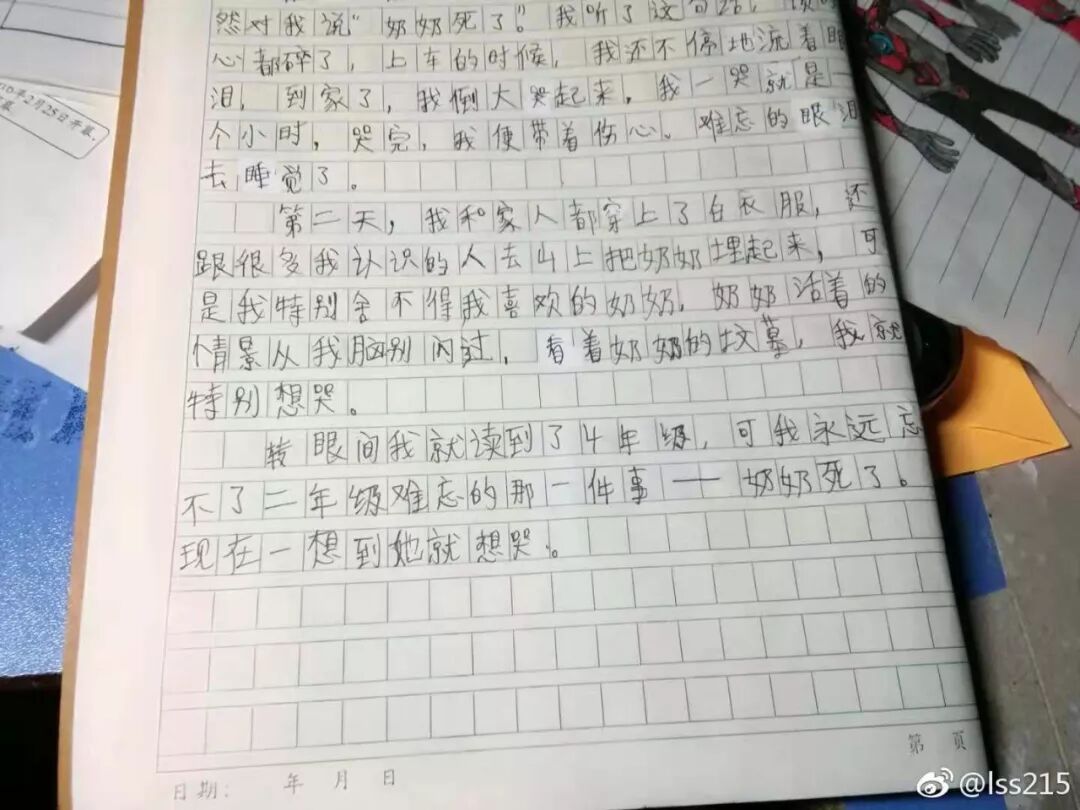 然对我说“奶奶死了”。我听了这句话，
心都碎了，上车的时候，我还不停地流着眼
泪，到家了，我倒大哭起来，我一哭就是一
个小时，哭完，我便带着伤心。难忘的眼泪
去睡觉了。
第二天，我和家人都穿上了白衣服，还
跟很多我认识的人去山上把奶奶埋起来，可
是我特别舍不得我喜欢的奶奶，奶奶活着的
情景从我脑别闪过，看着奶奶的坟墓，我就
特别想哭。
转眼间我就读到了4年级，可我永远忘
不了二年级难忘的那一件事——奶奶死了。
现在一想到她就想哭。
日期： 年 月 日
第 页
年2月25日开幕
@lss215